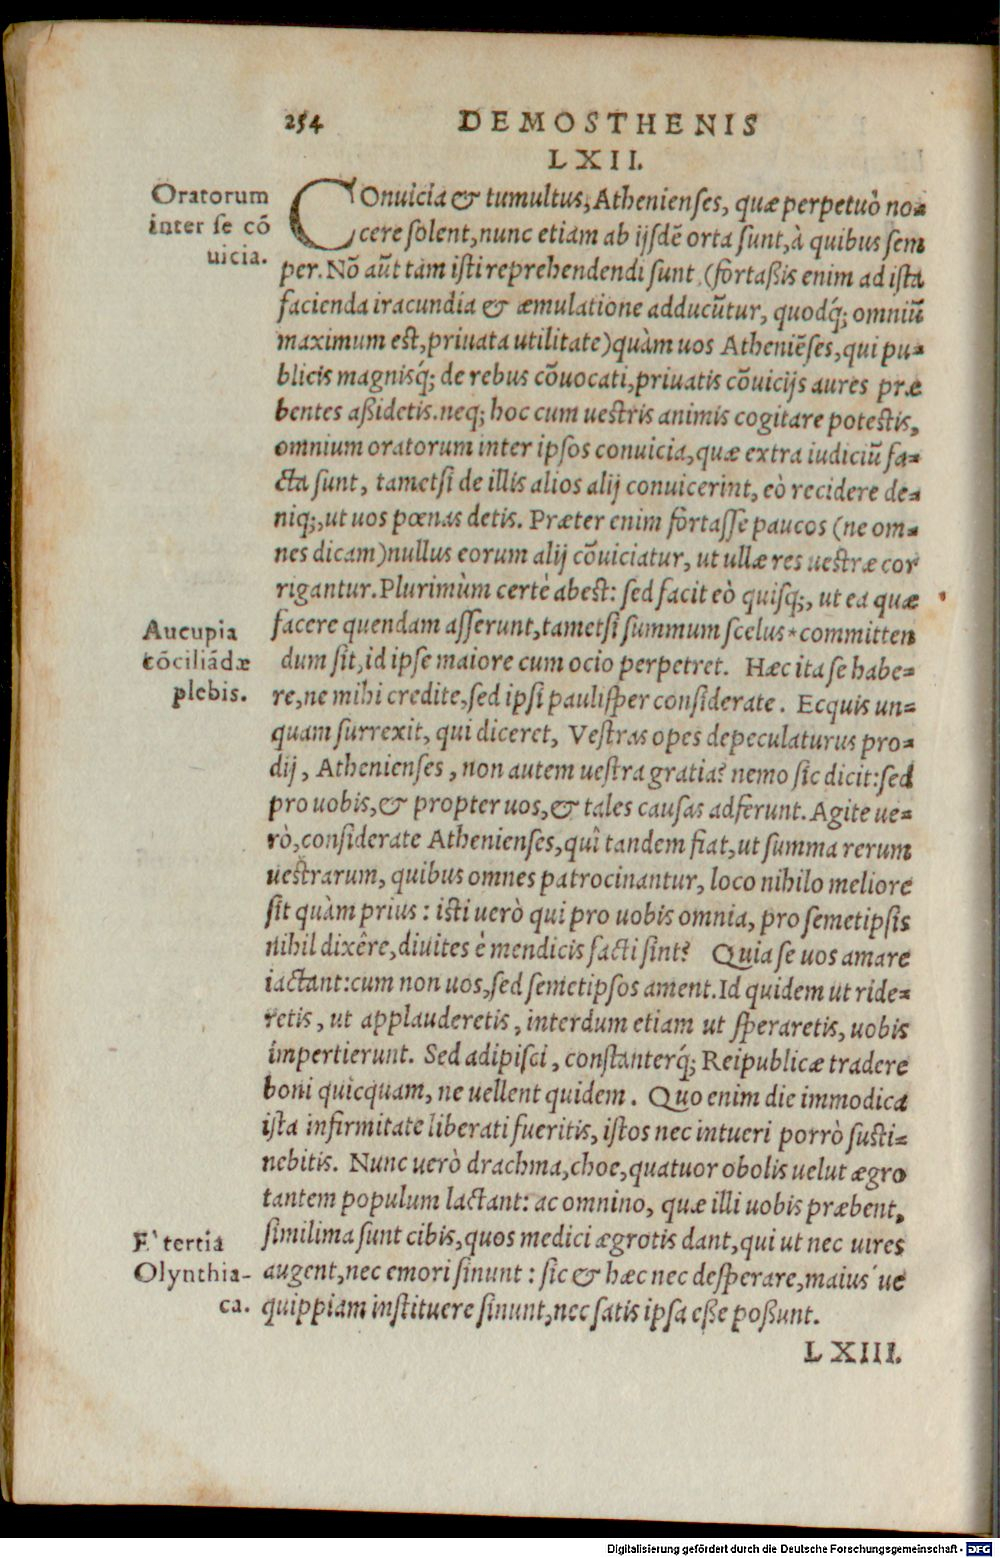 254 DEMOSTHENIS
LXII.
Oratorum
inter se cō
uicia.
COnuicia & tumultus, Athenienses, quæ perpetuò no=
cere solent, nunc etiam ab ijsdē orta sunt, à quibus sem
per. Nō aūt tam isti reprehendendi sunt (fortaßis enim ad ista
facienda iracundia & æmulatione adducūtur, quodq́; omniū
maximum est, priuata utilitate) quàm uos Atheniēses, qui pu=
blicis magnisq́; de rebus cōuocati, priuatis cōuicijs aures præ
bentes aßidetis. neq; hoc cum uestris animis cogitare potestis,
omnium oratorum inter ipsos conuicia, quæ extra iudiciū fa=
cta sunt, tametsi de illis alios alij conuicerint, eò recidere de=
niq;, ut uos pœnas detis. Præter enim fortasse paucos (ne om=
nes dicam) nullus eorum alij cōuiciatur, ut ullæ res uestræ cor
rigantur. Plurimùm certè abest: sed facit eò quisq;, ut ea quæ
facere quendam asserunt, tametsi summum scelus * committen
dum sit, id ipse maiore cum ocio perpetret. Hæc ita se habe=
re, ne mihi credite, sed ipsi paulisper considerate. Ecquis un=
quam surrexit, qui diceret, Vestras opes depeculaturus pro=
dij, Athenienses, non autem uestra gratia? nemo sic dicit: sed
pro uobis, & propter uos, & tales causas adferunt. Agite ue=
rò, considerate Athenienses, quî tandem fiat, ut summa rerum
uestrarum, quibus omnes patrocinantur, loco nihilo meliore
sit quàm prius: isti uerò qui pro uobis omnia, pro semetipsis
nihil dixêre, diuites è mendicis facti sint? Quia se uos amare
iactant: cum non uos, sed semetipsos ament. Id quidem ut ride=
retis, ut applauderetis, interdum etiam ut speraretis, uobis
impertierunt. Sed adipisci, constanterq́; Reipublicæ tradere
boni quicquam, ne uellent quidem. Quo enim die immodica
ista infirmitate liberati fueritis, istos nec intueri porrò susti=
nebitis. Nunc uerò drachma, choe, quatuor obolis uelut ægro
tantem populum lactant: ac omnino, quæ illi uobis præbent,
similima sunt cibis, quos medici ægrotis dant, qui ut nec uires
augent, nec emori sinunt: sic & hæc nec desperare, maius´ue
quippiam instituere sinunt, nec satis ipsa eße poßunt.
Aucupia
cōciliādæ
plebis.
E` tertia
Olynthia-
ca.
LXIII.
Digitalisierung gefördert durch die Deutsche Forschungsgemeinschaft - DFG